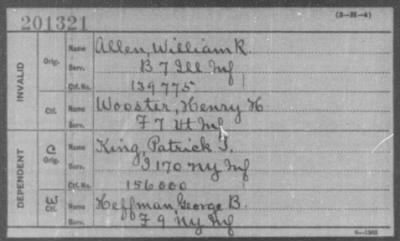 201321
(3-21-4)
INVALID
Orig.
Name Allen, William R.
Serv. B 7 Ill Inf
Ctf. No. 139775
Ctf.
Name Wooster, Henry H
Serv. F 7 Vt Inf
DEPENDENT
C
Orig.
Name King, Patrick J.
Serv. I 170 NY Inf
Ctf. No. 156000
W
Ctf.
Name Heffman, George B.
Serv. F 9 NY Inf